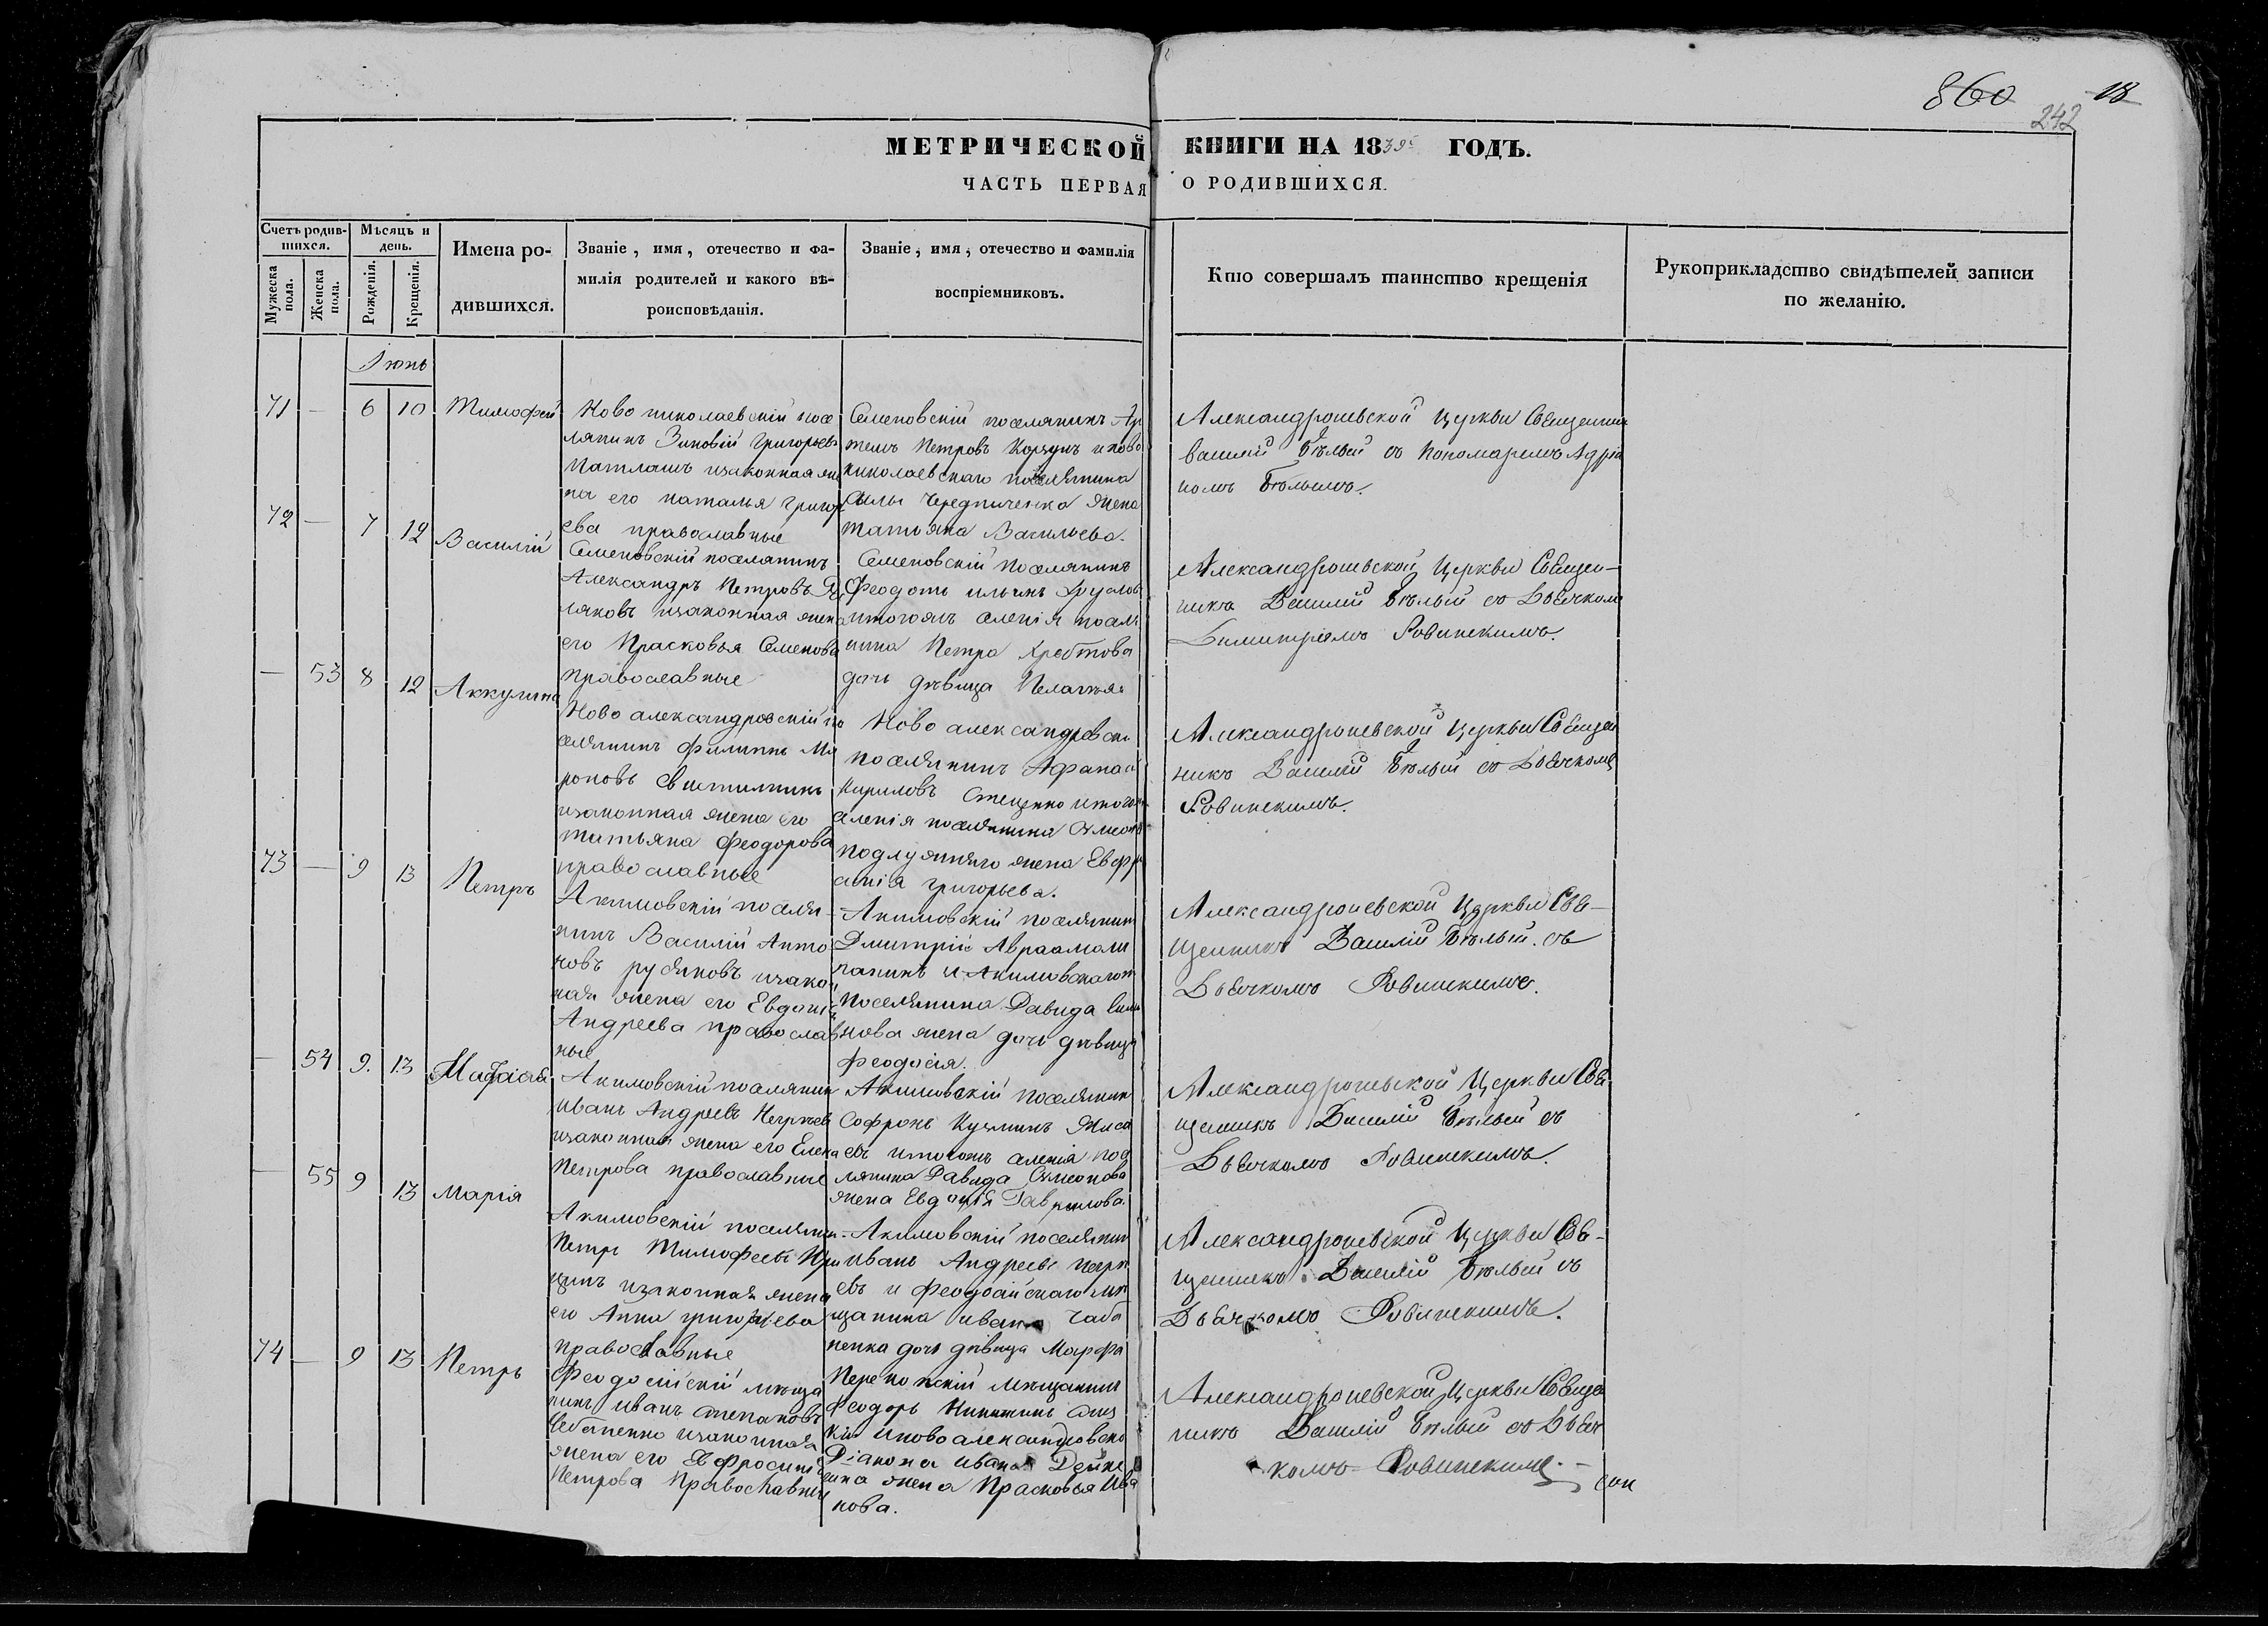 860 18
242
МЕТРИЧЕСКОЙ КНИГИ НА 1839 ГОДЪ.
ЧАСТЬ ПЕРВАЯ О РОДИВШИХСЯ.
Счетъ родив-
шихся.
Мужеска
пола.
Женска
пола.
Мѣсяцъ и
день.
Рожденія.
Крещенія.
Имена ро-
дившихся.
Званіе, имя, отечество и фа-
милія родителей и какого вѣ-
роисповѣданія.
Званіе, имя, отечество и фамилія
воспріемниковъ.
Кто совершалъ таинство крещенія
Рукоприкладство свидѣтелей записи
по желанію.
Іюнь
71 — 6 10 Тимофей
Ново николаевскій посе
лянинъ Зиновій Григорьевъ
Патлашъ изаконная же
на его наталья Григор
ева православные
Семеновскій поселянинъ Ар
темъ Петровъ Корзунъ иново
николаевскаго поселянина
Силы Чередниченка жена
татьяна Васильева.
Александроневской Церкви Священни
василій Бѣлый съ пономаремъ Адріа
номъ Бѣлымъ.
72 — 7 12 Василій
Семеновскій поселянинъ
Александръ Петровъ
ляковъ изаконная жена
его Прасковья Семенова
православные
Семеновскій поселянинъ
Феодотъ ильинъ
итогожъ селенія посел
нина Петра Хребтова
дочь дѣвица Пелагея
Александроневской Церкви Священ-
никъ Василій Бѣлый съ Дьячкомъ
Димитріемъ Ровинскимъ.
— 53 8 12 Аккулина
Ново александровскій по
селянинъ Филиппъ Ми
роновъ
изаконная жена его
татьяна Феодорова
православные
Ново александровскі
поселянинъ Афанасі
Кириловъ Стеценко итогож
селенія поселянина Симеона
подлужняго жена Евфро
синія григорьева.
Александроневской Церкви Священ
никъ Василій Бѣлый съ Дьячкомъ
Ровинскимъ.
73 — 9 13 Петръ
Акимовскій поселя-
нинъ Василій Анто
новъ русяновъ изакон
ная жена его Евдокія
Андреева православ
ные
Акимовскій поселянин
Дмитрій
и Акимовскаго
поселянина Давида
нова жена дочь дѣвица
феодосія.
Александроневской Церкви Свя-
щенникъ Василій Бѣлый съ
Дьячкомъ Ровинскимъ.
— 54 9. 13
Акимовскій поселянин
иванъ Андреевъ
изаконная жена его Елена
Петрова православные
Акимовскій поселянин
Софронъ Кузминъ
евъ итогожъ селенія посе
лянина Давида Симеонова
жена Евдокія Гаврилова.
Александроневской Церкви Свя
щенникъ Василій Бѣлый съ
Дьячкомъ Ровинскимъ.
— 55 9 13 марія
Акимовскій поселянин
Петръ Тимофеевъ
цинъ изаконная жена
его Анна григорьева
православные
Акимовскій поселянин
иванъ Андреевъ
евъ и Феодосійскаго мѣ
щанина ивана Чаба
ненка дочь дѣвица Марфа
Александроневской Церкви Свя-
щенникъ Василій Бѣлый съ
Дьячкомъ Ровинскимъ.
74 — 9 13 Петръ
Феодосійскій мѣща
нинъ иванъ степановъ
Чебаненко изаконная
жена его Евфросинія
Петрова Православные
Перекопскій мѣщанинъ
Феодоръ Никитинъ
иновоалександровска
Діакона ивана
жена Прасковья Ива
нова.
Александроневской Церкви Свяще
никъ Василій Бѣлый съ Дьяч
комъ Ровинскимъ.